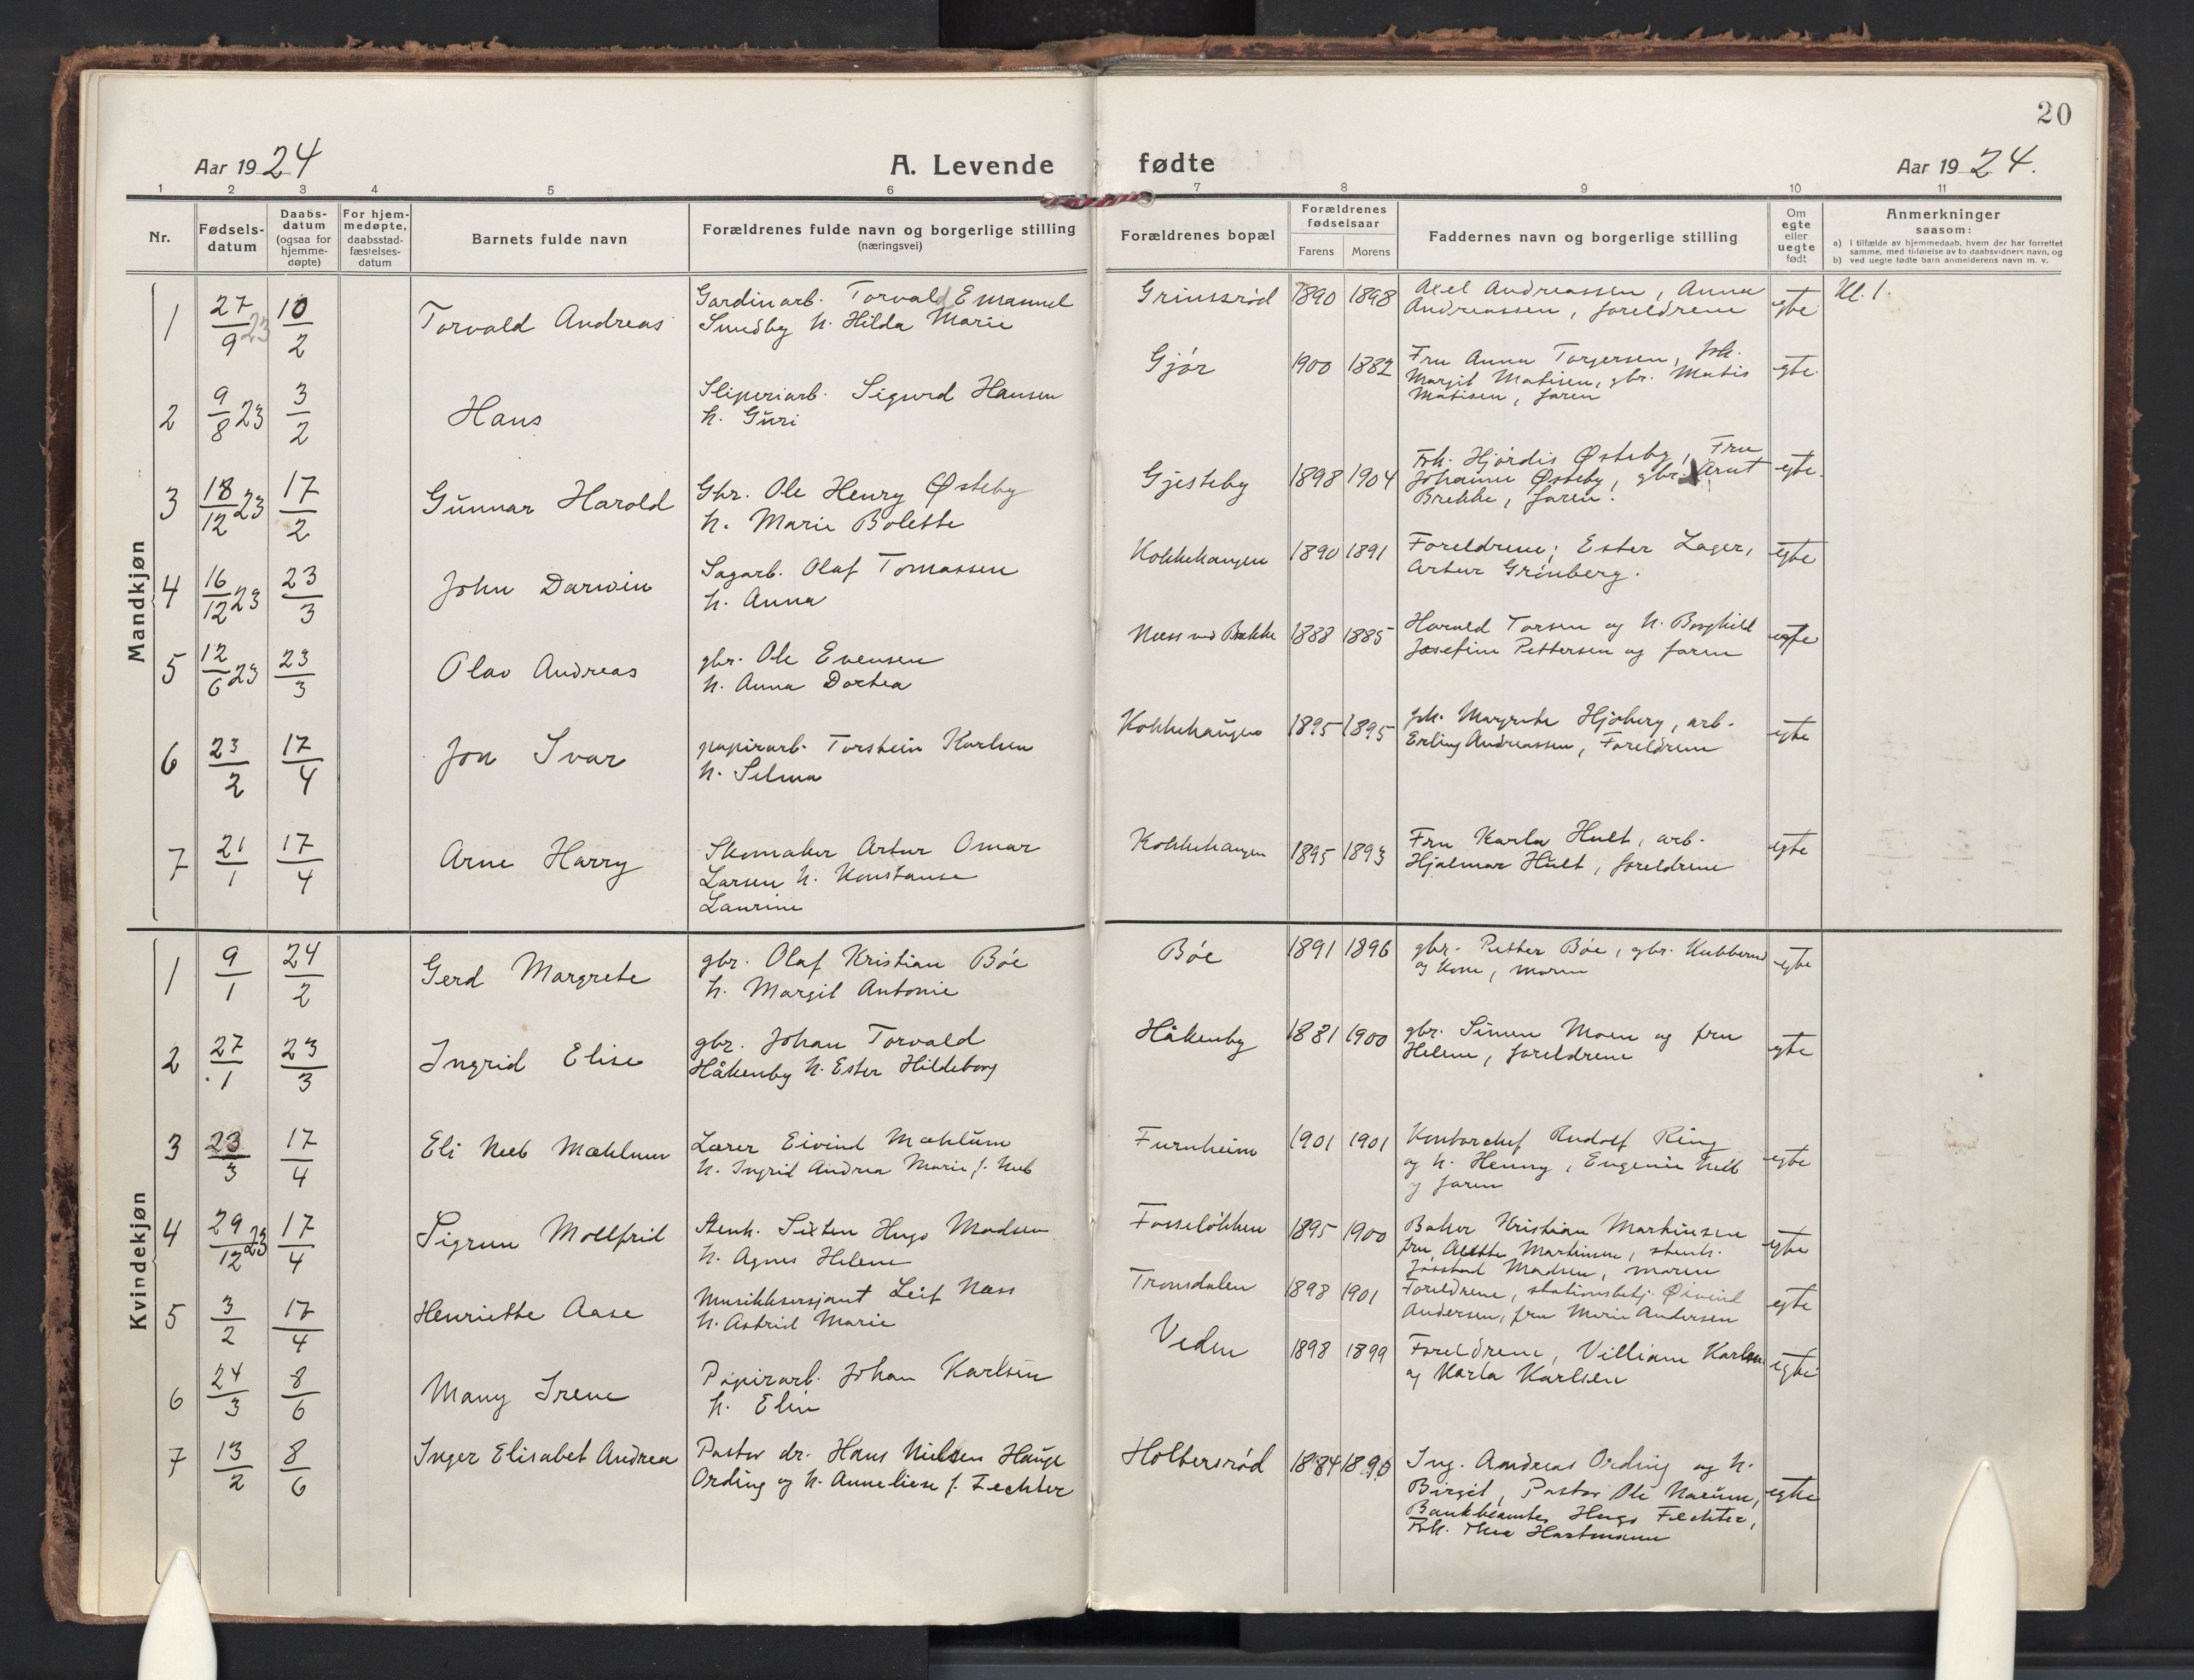 20
Aar 1924
A. Levende fødte
Aar 1924.
1 2 3 4 5 6 7 8 9 10 11
Nr.
Fødsels-
datum
Daabs-
datum
(ogsaa for
hjemme-
døpte)
For hjem-
medøpte,
daabsstad-
fæstelses-
datum
Barnets fulde navn
Forældrenes fulde navn og borgerlige stilling
(næringsvei)
Forældrenes bopæl
Forældrenes
fødselsaar
Farens
Morens
Faddernes navn og borgerlige stilling
Om
egte
eller
uegte
født
Anmerkninger
saasom:
a) i tilfælde av hjemmedaab, hvem der har forrettet
samme, med tilføielse av to daabsvidners navn, og
b) ved uegte fødte barn anmelderens navn m. v.
Mandkjøn
1 27/9 23 10/2 Torvald Andreas
Gardinarb. Torvald Emanuel
Sundby h. Hilda Marie
Grinsrød 1890 1898
Axel Andreassen, Anna
Andreassen, foreldrene
egte
Kl. 1.
2 9/8 23 3/2 Hans
Sliperiarb. Sigurd Hansen
h. Guri
Gjør 1900 1882
Fru Anna Torgersen, frk.
Margit Matisen, gbr. Matis
Matisen, faren
egte
3 18/12 23 17/2 Gunnar Harold
Gbr. Ole Henry Østeby
h. Marie Bolette
Gjesteby 1898 1904
Frk. Hjørdis Østeby, Fru
Johanne Østeby, gbr. Arnt
Brekke, faren.
egte.
4 16/12 23 23/3 John Darwin
Sagarb. Olaf Tomassen
h. Anna
Kokkehaugen 1890 1891
Foreldrene; Ester Lager,
Artur Grönberg.
egte
5 12/6 23 23/3 Olav Andreas
gbr. Ole Evensen
h. Anna Dortea
Næss ved Brekke 1888 1885
Harald Torsen og h. Borghild
Josefine Pettersen og faren
egte
6 23/2 17/4 Jon Ivar
papirarb. Torstein Karlsen
h. Selma
Kokkehaugen 1895 1895
frk. Margrete Hjoberg, arb.
Erling Andreassen, Foreldrene
egte
7 21/1 17/4 Arne Harry
Skomaker Artur Omar
Larsen h. Konstanse
Laurine
Kokkehaugen 1895 1893
Fru Karla Hult, arb.
Hjalmar Hult, foreldrene
egte
Kvindekjøn
1 9/1 24/2 Gerd Margrete
gbr. Olaf Kristian Böe
h. Margit Antonie
Böe 1891 1896
gbr. Petter Böe, gbr. Kubberud
og kone, moren
egte
2 27/1 23/3 Ingrid Elise
gbr. Johan Torvald
Håkenby h. Ester Hildeborg
Håkenby 1881 1900
gbr. Simen Moen og fru
Helene, foreldrene
egte
3 23/3 17/4 Eli Neeb Mæhlum
Lærer Eivind Mæhlum
h. Ingrid Andrea Marie f. Neeb
Furnheim 1901 1901
Kontorchef Rudolf Ring
og h. Henny, Eugenie Neeb
og faren
egte
4 29/12 23 17/4 Sigrun Mollfrid
Stenh. Sixten Hugo Madsen
h. Agnes Helene
Fosseløkken 1895 1900
Baker Kristian Martinsen
fru Martinsen, stenh.
Madsen, moren
egte
5 3/2 17/4 Henriette Aase
Musikksersjant Leif Næss
h. Astrid Marie
Tronsdalen 1898 1901
Foreldrene, stationsbetj. Øivind
Andersen, fru Marie Andersen
egte
6 24/3 8/6 Many Irene
Papirarb. Johan Karlsen
h. Elin
Veden 1898 1899
Foreldrene, Villiam Karlsen
og Karla Karlsen
egte
7 13/2 8/6 Inger Elisabet Andrea
Pastor dr. Hans Nielsen Hauge
Ording og h. Anneliese f. Fechter
Holtersrød 1884 1890
Ing. Andreas Ording og h.
Birgit, Pastor Ole Narum,
Bankbeamter Hugo Fechter,
Frk. Thea Hartmann
egte